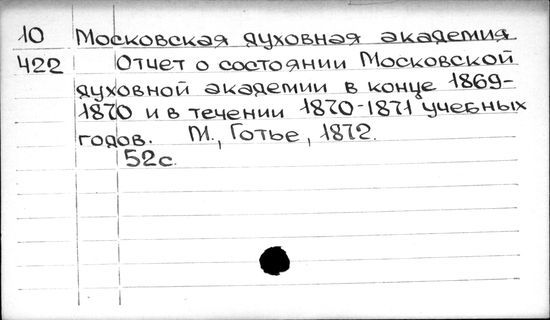 10 Московская духовная академия
422 Отчет о состоянии Московской
духовной академии в конце 1869-
1870 и в течении 1870-1871 учебных
годов. М., Готье, 1872.
52с.